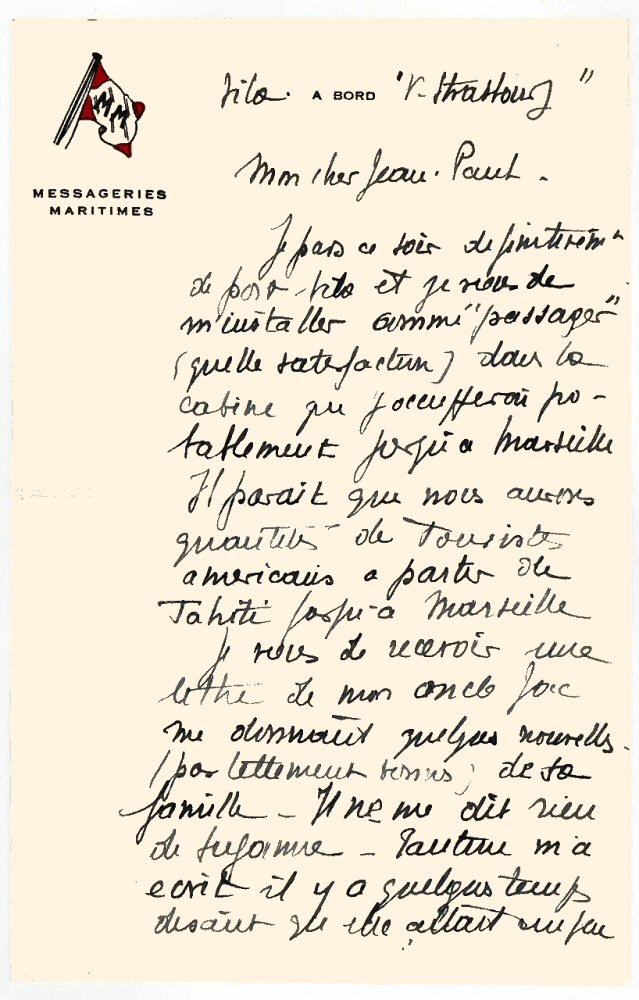 Vila. A BORD "V. Strasbourg"
MESSAGERIES
MARITIMES
Mon cher Jean. Paul.
Je pars ce soir definitivemt
de port-Vila et je viens de
m'installer comme "passager"
(quelle satisfaction) dans la
cabine que j'occupperai pro-
bablement jusqu'a Marseille
Il parait que nous aurons
quantités de Touristes
americains a partir de
Tahiti jusqu'a Marseille
Je viens de recevoir une
lettre de mon oncle Jac
me donnant quelques nouvelles
de sa
famille - Il ne me dit rien
de Suzanne - m'a
ecrit il y a quelques temps
disant qu'elle allait un peu